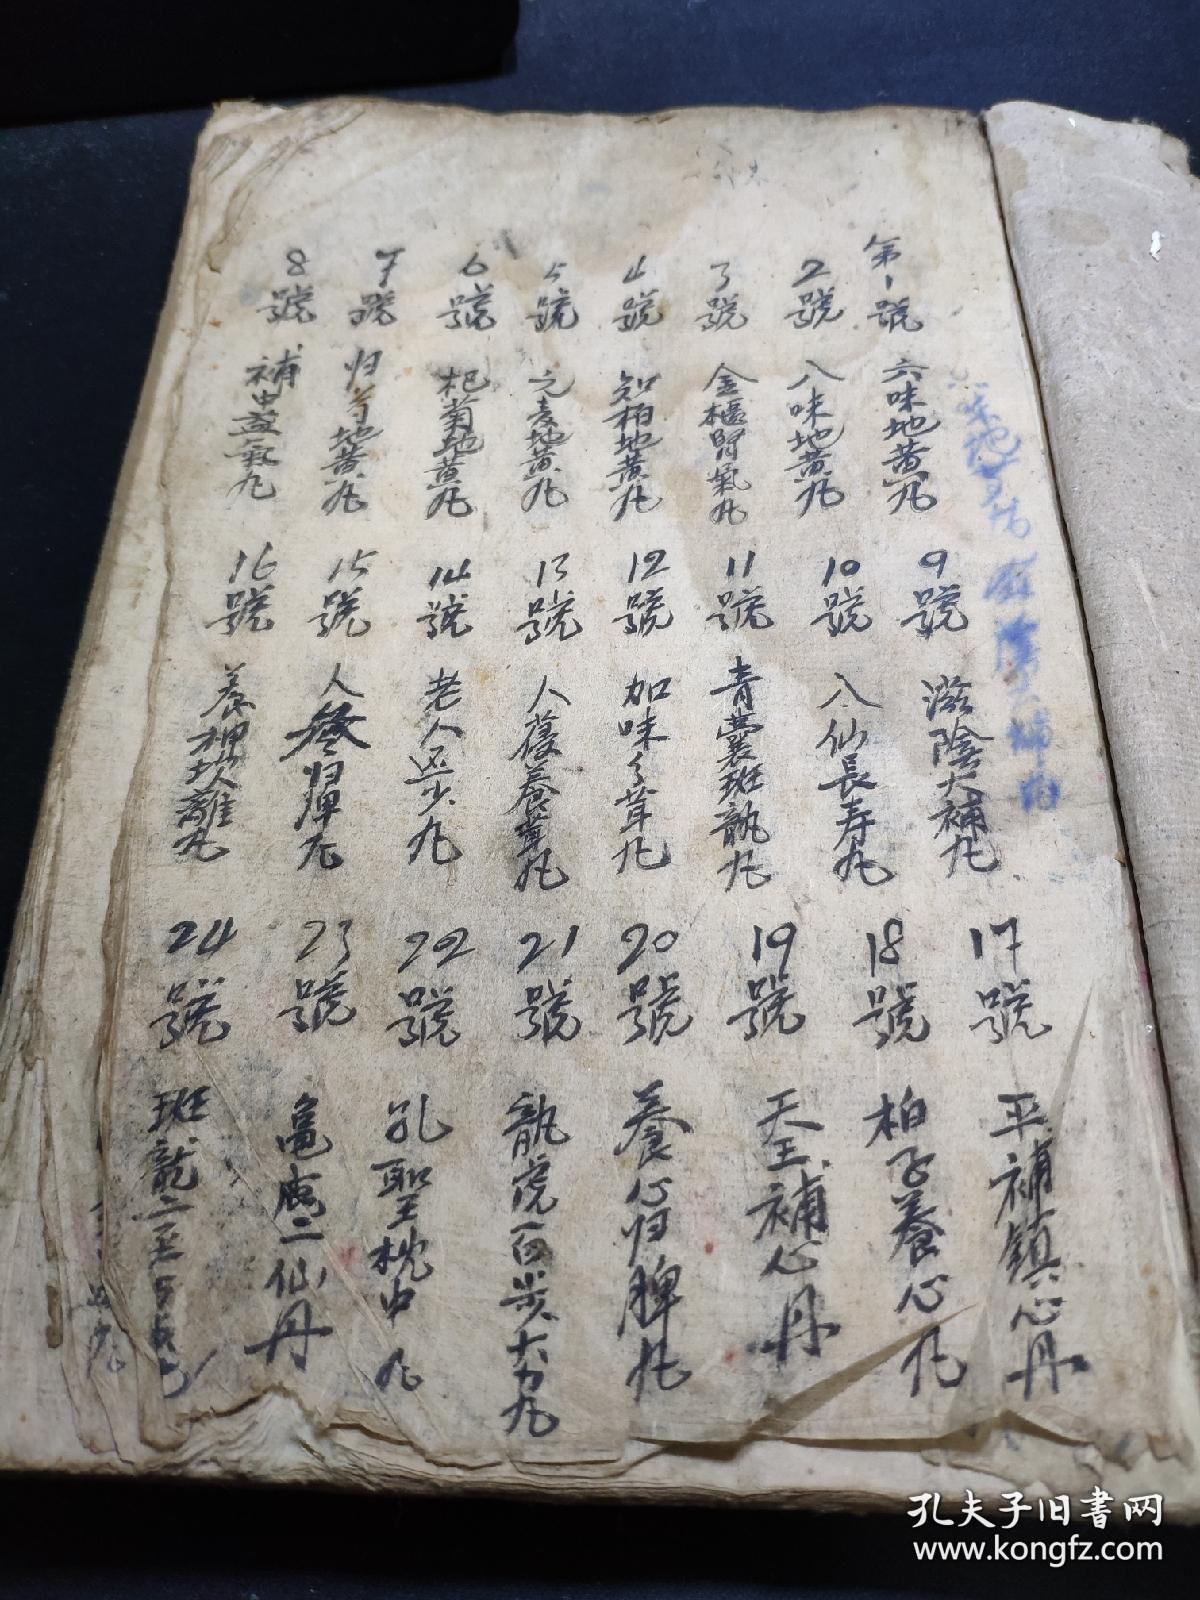 第1號 六味地黄丸
2號 八味地黄丸
3號 金櫃腎氣丸
4號 知柏地黄丸
5號 元麦地黄丸
6號 杞菊地黄丸
7號 归芍地黄丸
8號 補中益氣丸
9號 滋陰大補丸
10號 八仙長寿丸
11號 青囊斑龍丸
12號 加味参茸丸
13號 人葠養荣丸
14號 老人丸
15號 人參归脾丸
16號 坎離丸
17號 平補鎮心丹
18號 柏子養心丸
19號 天王補心丹
20號 養心归脾丸
21號 龍虎百步大力丸
22號 孔聖枕中丸
23號 龜鹿二仙丹
24號 斑龍二至
孔夫子旧書网
www.kongfz.com